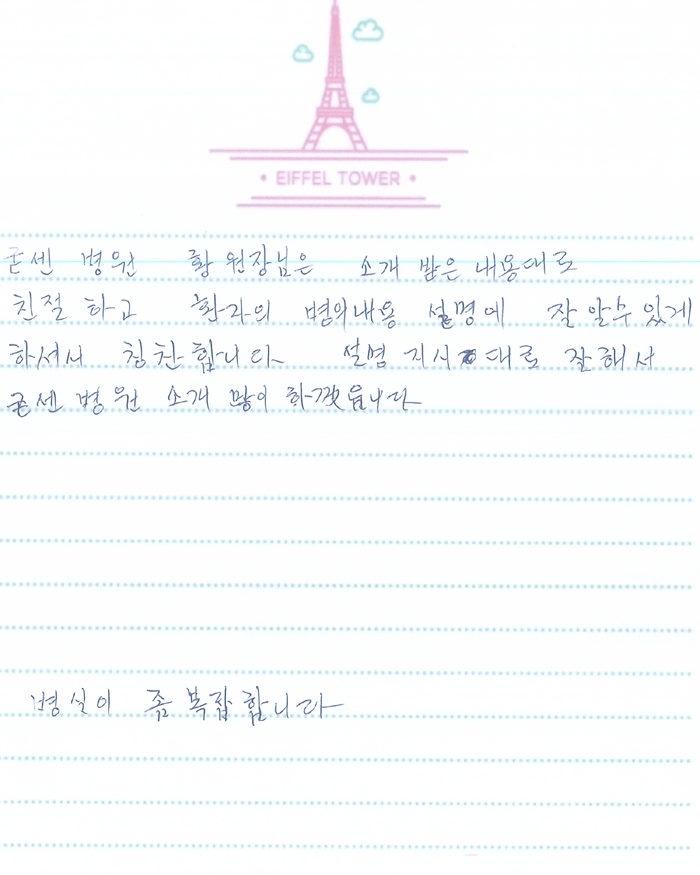 • EIFFEL TOWER •
굳센 병원 황원장님은 소개 받은 내용대로
친절 하고 환자의 병의내용 설명에 잘 알수 있게
하셔서 칭찬 합니다 설명 지시 대로 잘해서
굳센 병원 소개 많이 하겠읍니다
병실이 좀 복잡 합니다